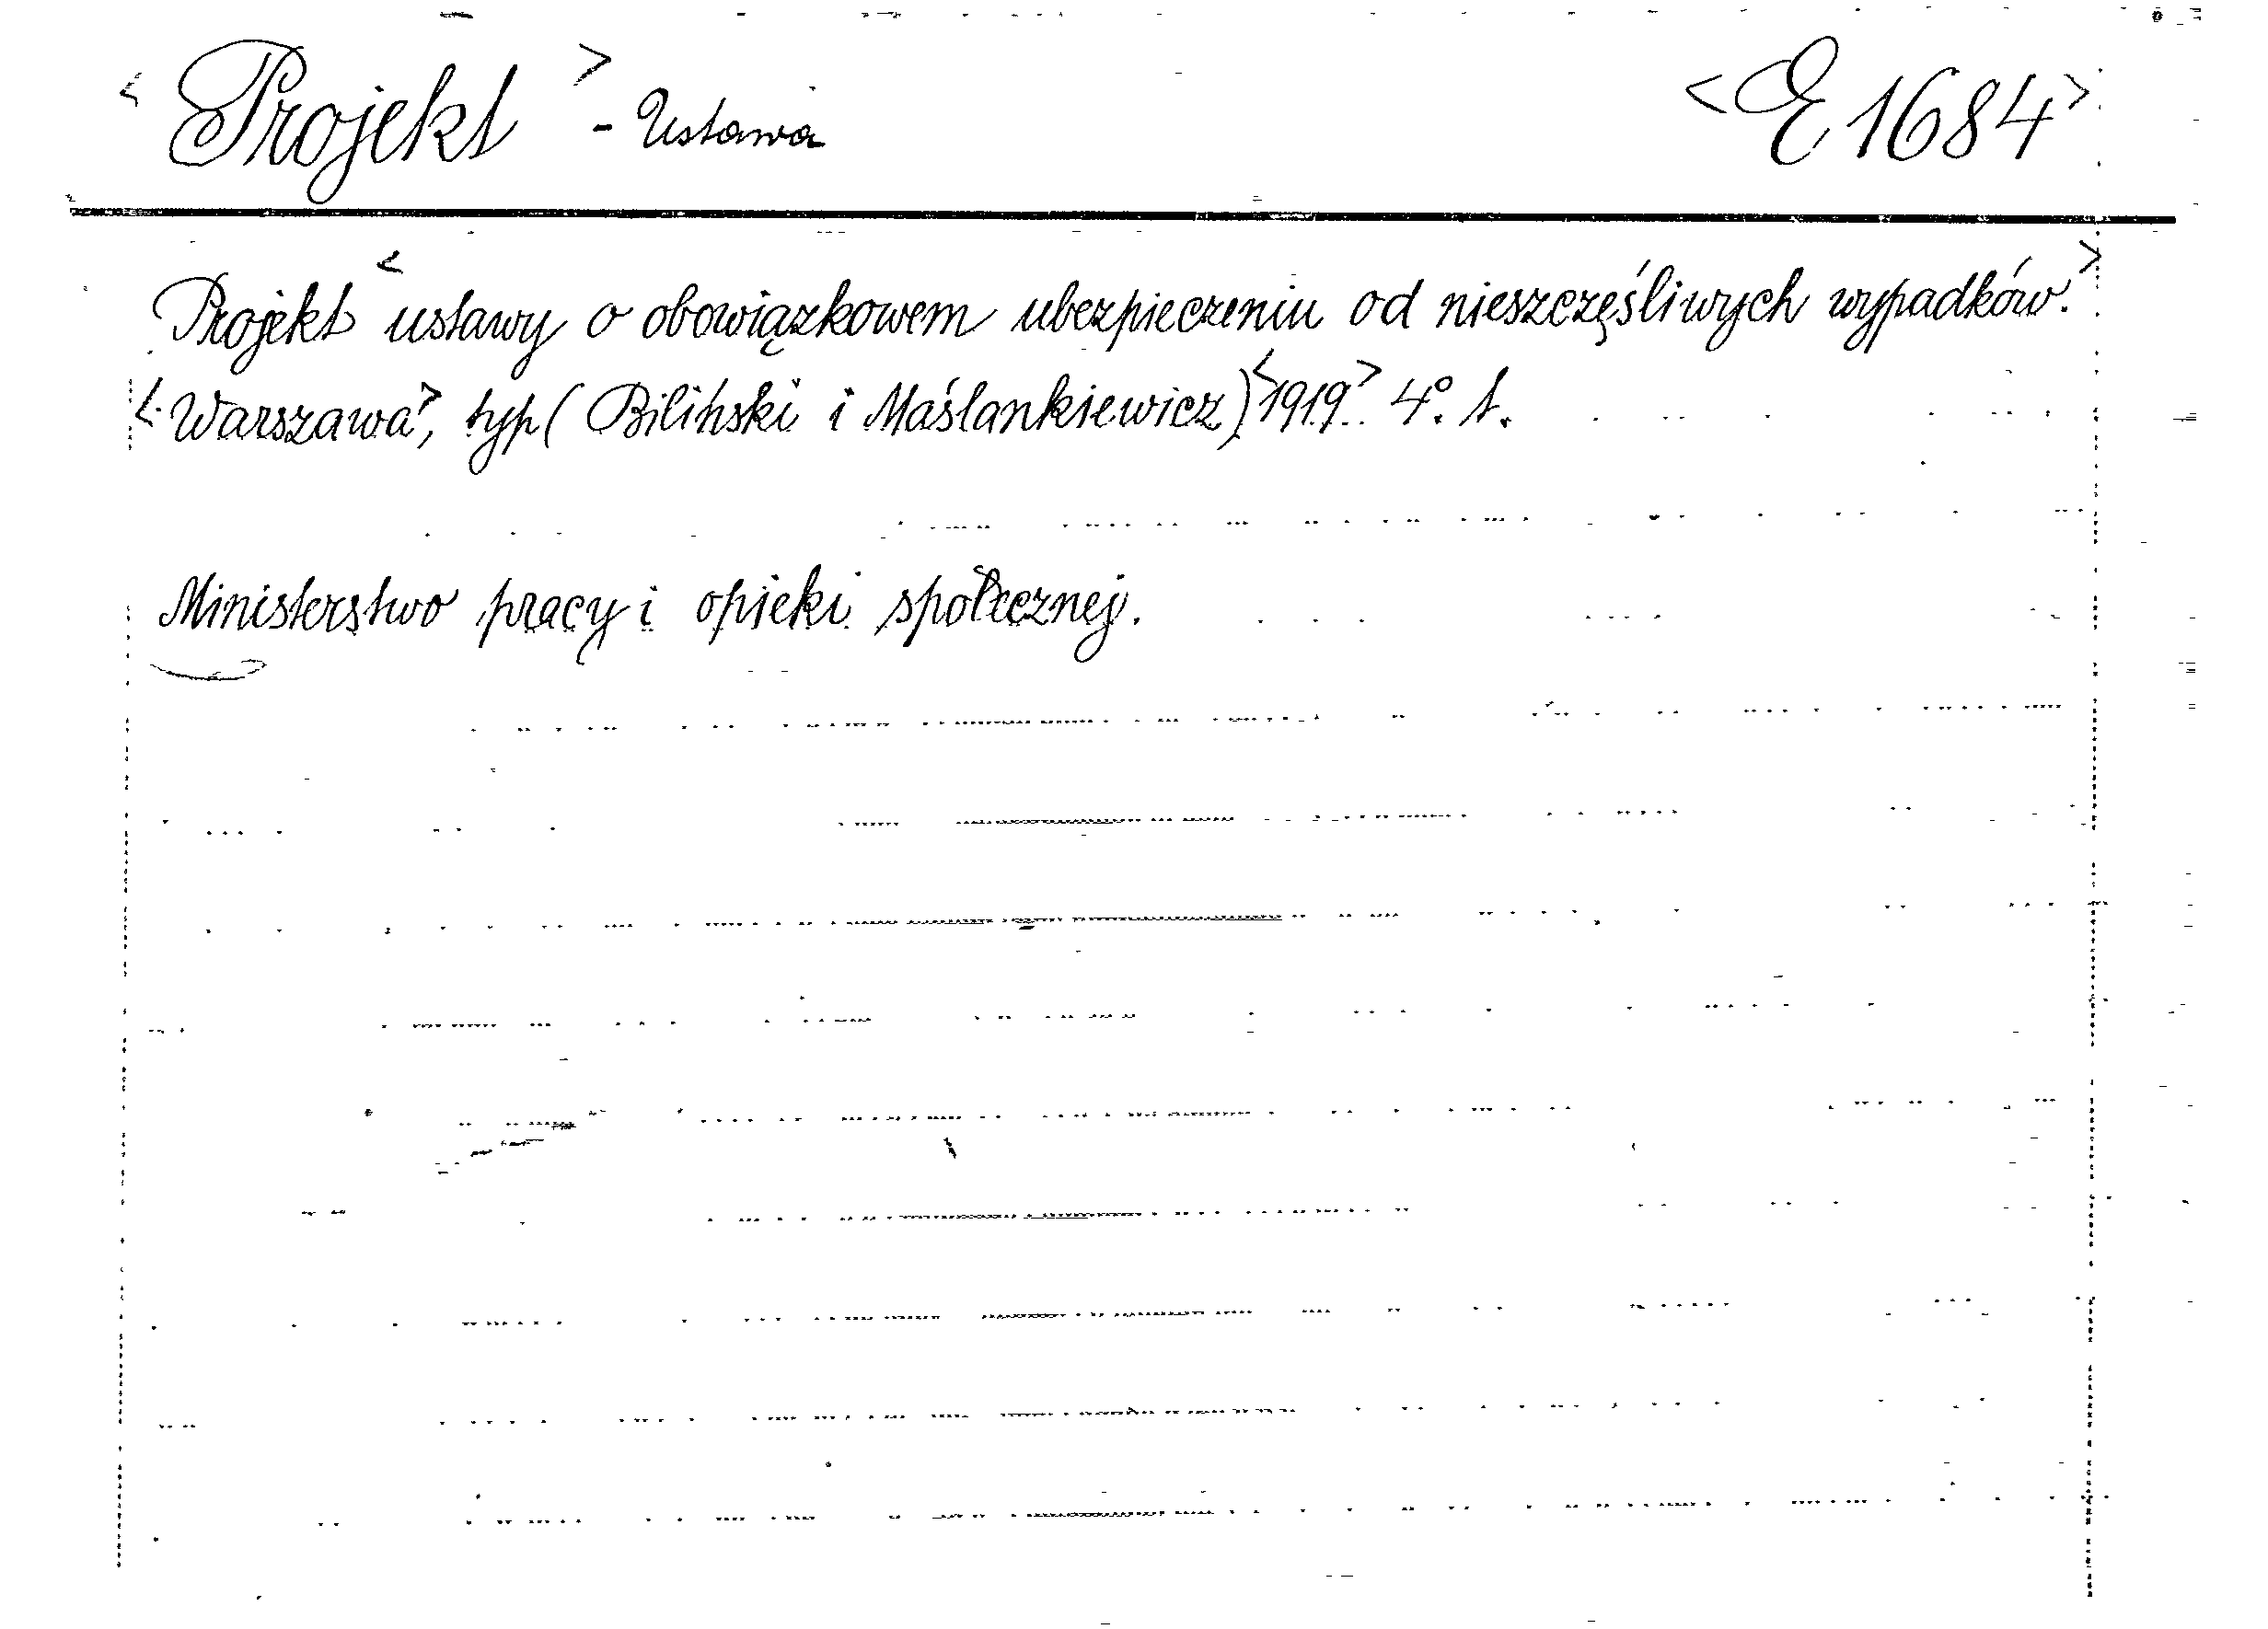 < Projekt > - Ustawa <E 1684>
Projekt < ustawy o obowiązkowem ubezpieczeniu od nieszczęśliwych wypadków. >
< Warszawa >, typ ( Biliński i Maślankiewicz ) < 1919. > 4º.
Ministerstwo pracy i opieki społecznej.